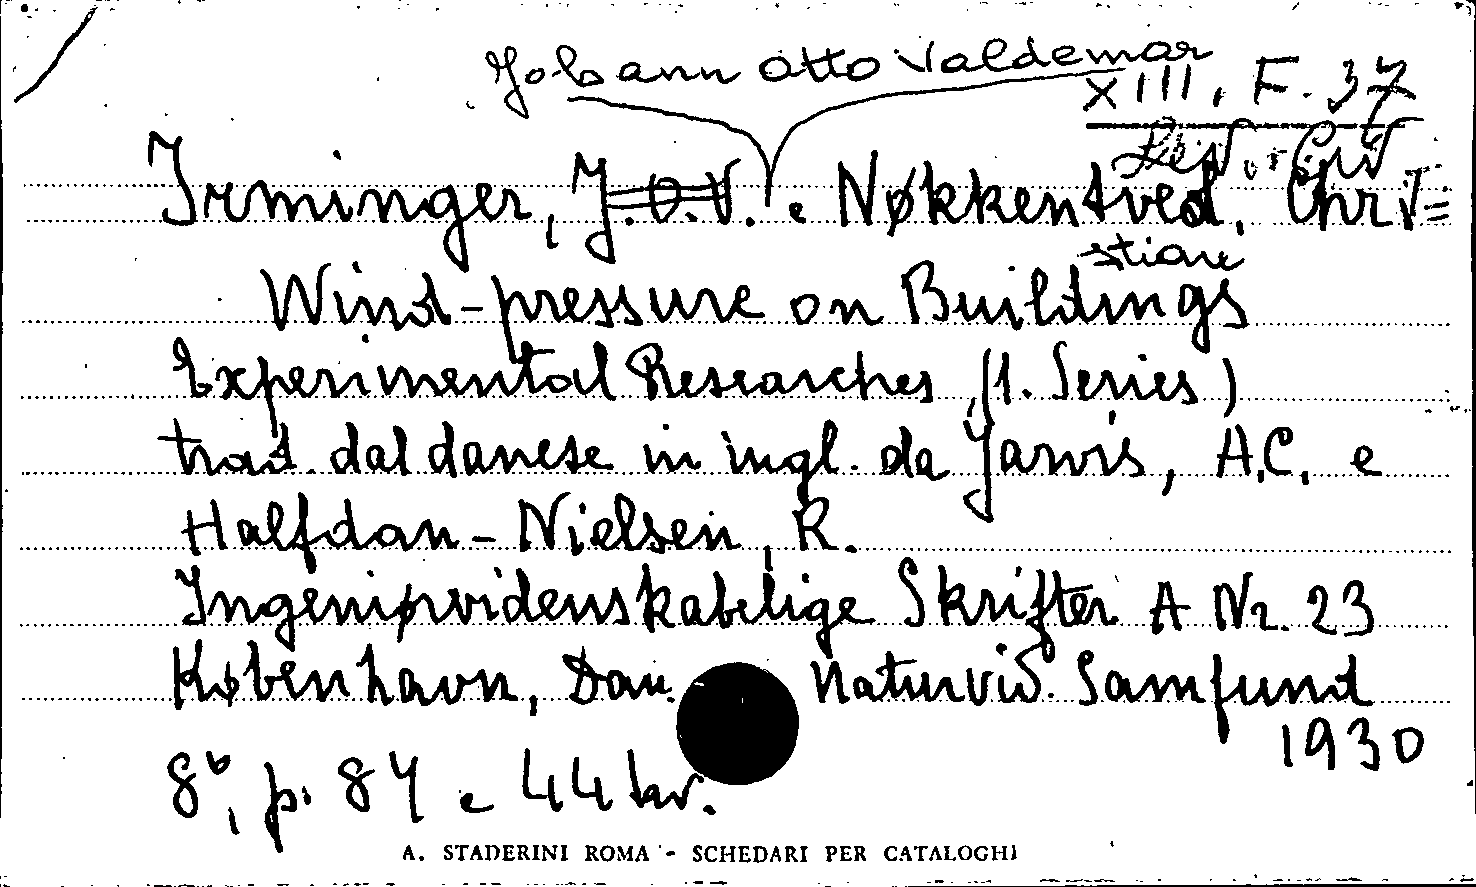 Johann Otto Valdemar
XIII, F. 37
Irminger, J.O.V. e Nøkkentved, Chr
stian
Wind-pressure on Buildings
Experimental Researches (1. Series)
trad. dal danese in ingl. da Jarvis, A.C. e
Halfdan-Nielsen, R.
Ingeniørvidenskabelige Skrifter A Nr. 23
København, Dan. Naturvid. Samfund
1930
8°, p. 84 e 44 tav.
A. STADERINI ROMA - SCHEDARI PER CATALOGHI